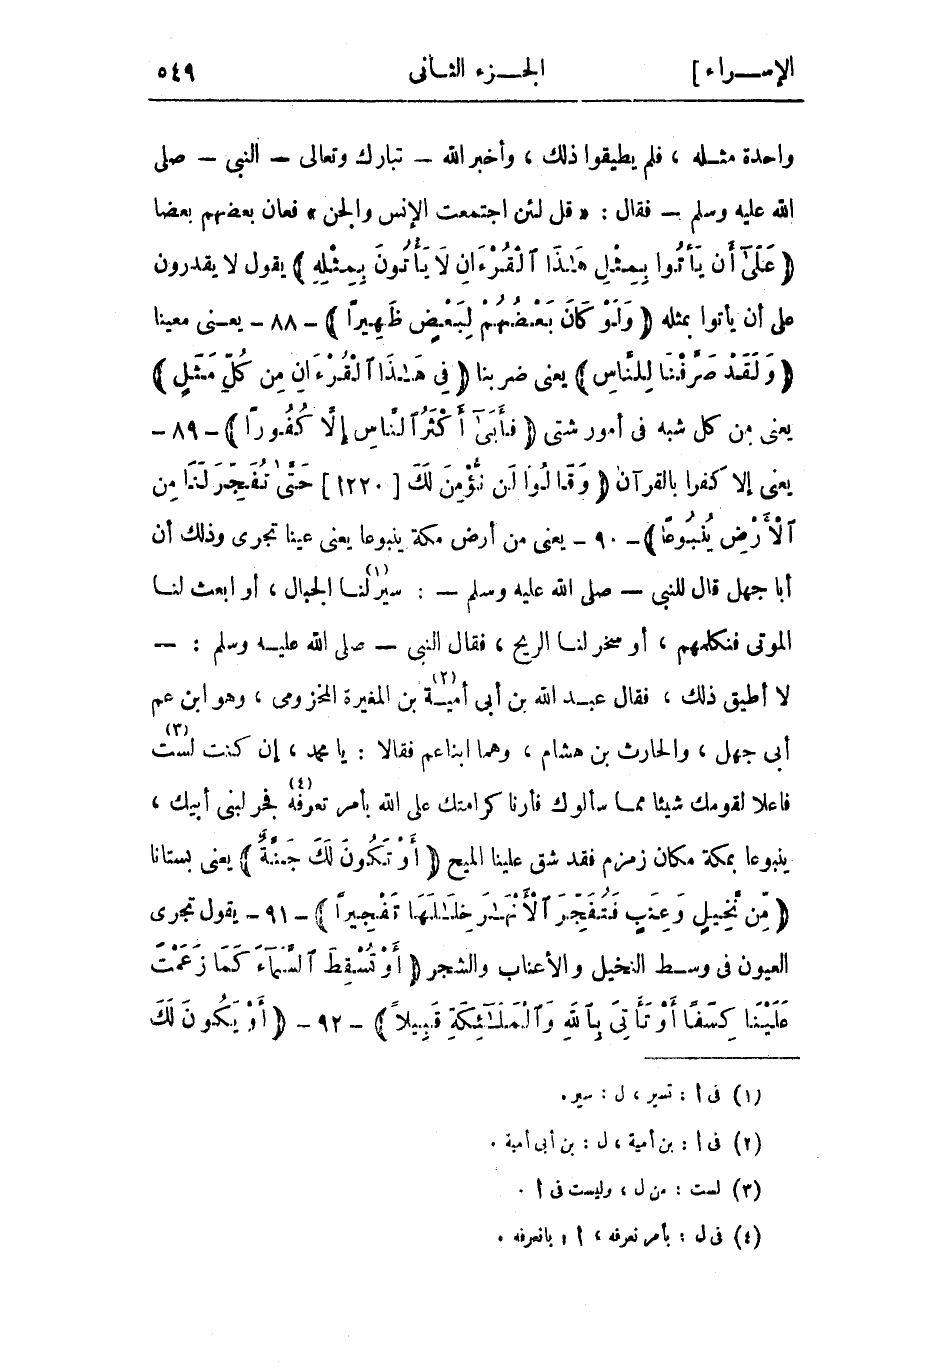 الإسراء]
الجزء الثانى
٥٤٩
واحدة مثله ، فلم يطيقوا ذلك ، وأخبر الله — تبارك وتعالى — النبى — صلى
الله عليه وسلم — فقال : « قل لئن اجتمعت الإنس والجن » فعان بعضهم بعضا
﴿ عَلَىٰٓ أَن يَأْتُوا بِمِثْلِ هَـٰذَا ٱلْقُرْءَانِ لَا يَأْتُونَ بِمِثْلِهِ ﴾ يقول لا يقدرون
على أن يأتوا بمثله ﴿ وَلَوْ كَانَ بَعْضُهُمْ لِبَعْضٍ ظَهِيرًا ﴾ - ٨٨ - يعنى معينا
﴿ وَلَقَدْ صَرَّفْنَا لِلنَّاسِ ﴾ يعنى ضربنا ﴿ فِى هَـٰذَا ٱلْقُرْءَانِ مِن كُلِّ مَثَلٍ ﴾
يعنى من كل شبه فى أمور شتى ﴿ فَأَبَىٰٓ أَكْثَرُ ٱلنَّاسِ إِلَّا كُفُورًا ﴾ - ٨٩ -
يعنى إلا كفرا بالقرآن ﴿ وَقَالُوا لَن نُّؤْمِنَ لَكَ [ ١٢٢٠ ] حَتَّىٰ تُفَجِّرَ لَنَا مِنَ
ٱلْأَرْضِ يَنْبُوعًا ﴾ - ٩٠ - يعنى من أرض مكة ينبوعا يعنى عينا تجرى وذلك أن
أبا جهل قال للنبى — صلى الله عليه وسلم — : سير(١) لنا الجبال ، أو ابعث لنا
الموتى فنكلمهم ، أو سخر لنا الريح ، فقال النبى — صلى الله عليه وسلم : —
لا أطيق ذلك ، فقال عبد الله بن أبى أمية(٢) بن المغيرة المخزومى ، وهو ابن عم
أبى جهل ، والحارث بن هشام ، وهما ابنا عم فقالا : يا محمد ، إن كنت لست(٣)
فاعلا لقومك شيئا مما سألوك فأرنا كرامتك على الله بأمر تعرفه(٤) فجر لبنى أبيك ،
ينبوعا بمكة مكان زمزم فقد شق علينا الميح ﴿ أَوْ تَكُونَ لَكَ جَنَّةٌ ﴾ يعنى بستانا
﴿ مِّن نَّخِيلٍ وَعِنَبٍ فَتُفَجِّرَ ٱلْأَنْهَـٰرَ خِلَـٰلَهَا تَفْجِيرًا ﴾ - ٩١ - يقول تجرى
العيون فى وسط النخيل والأعناب والشجر ﴿ أَوْ تُسْقِطَ ٱلسَّمَآءَ كَمَا زَعَمْتَ
عَلَيْنَا كِسَفًا أَوْ تَأْتِىَ بِٱللَّهِ وَٱلْمَلَـٰٓئِكَةِ قَبِيلاً ﴾ - ٩٢ - ﴿ أَوْ يَكُونَ لَكَ
(١) فى أ : تسير ، ل : سير .
(٢) فى أ : بن أمية ، ل : بن أبى أمية .
(٣) لست : من ل ، وليست فى أ .
(٤) فى ل : بأمر نعرفه ، أ : يا نعرفه .